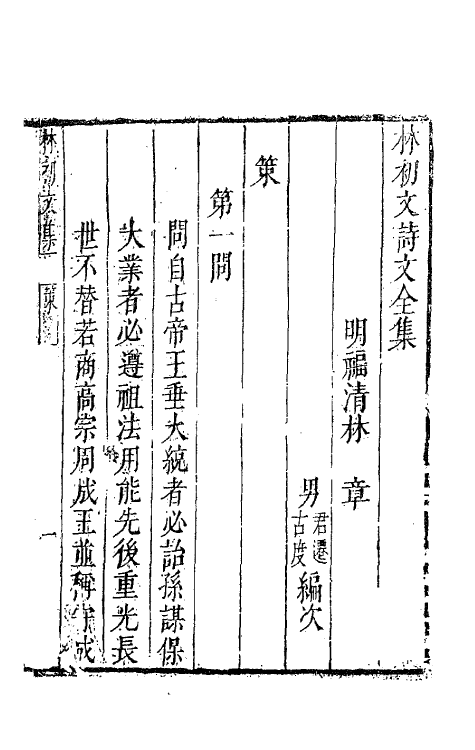 林初文詩文全集
明福清林 章
男君遷古度編次
策
第一問
問自古帝王垂大統者必詒孫謀保
大業者必遵祖法用能先後重光長
世不替若商高宗周成王並稱守成
林初文集
一